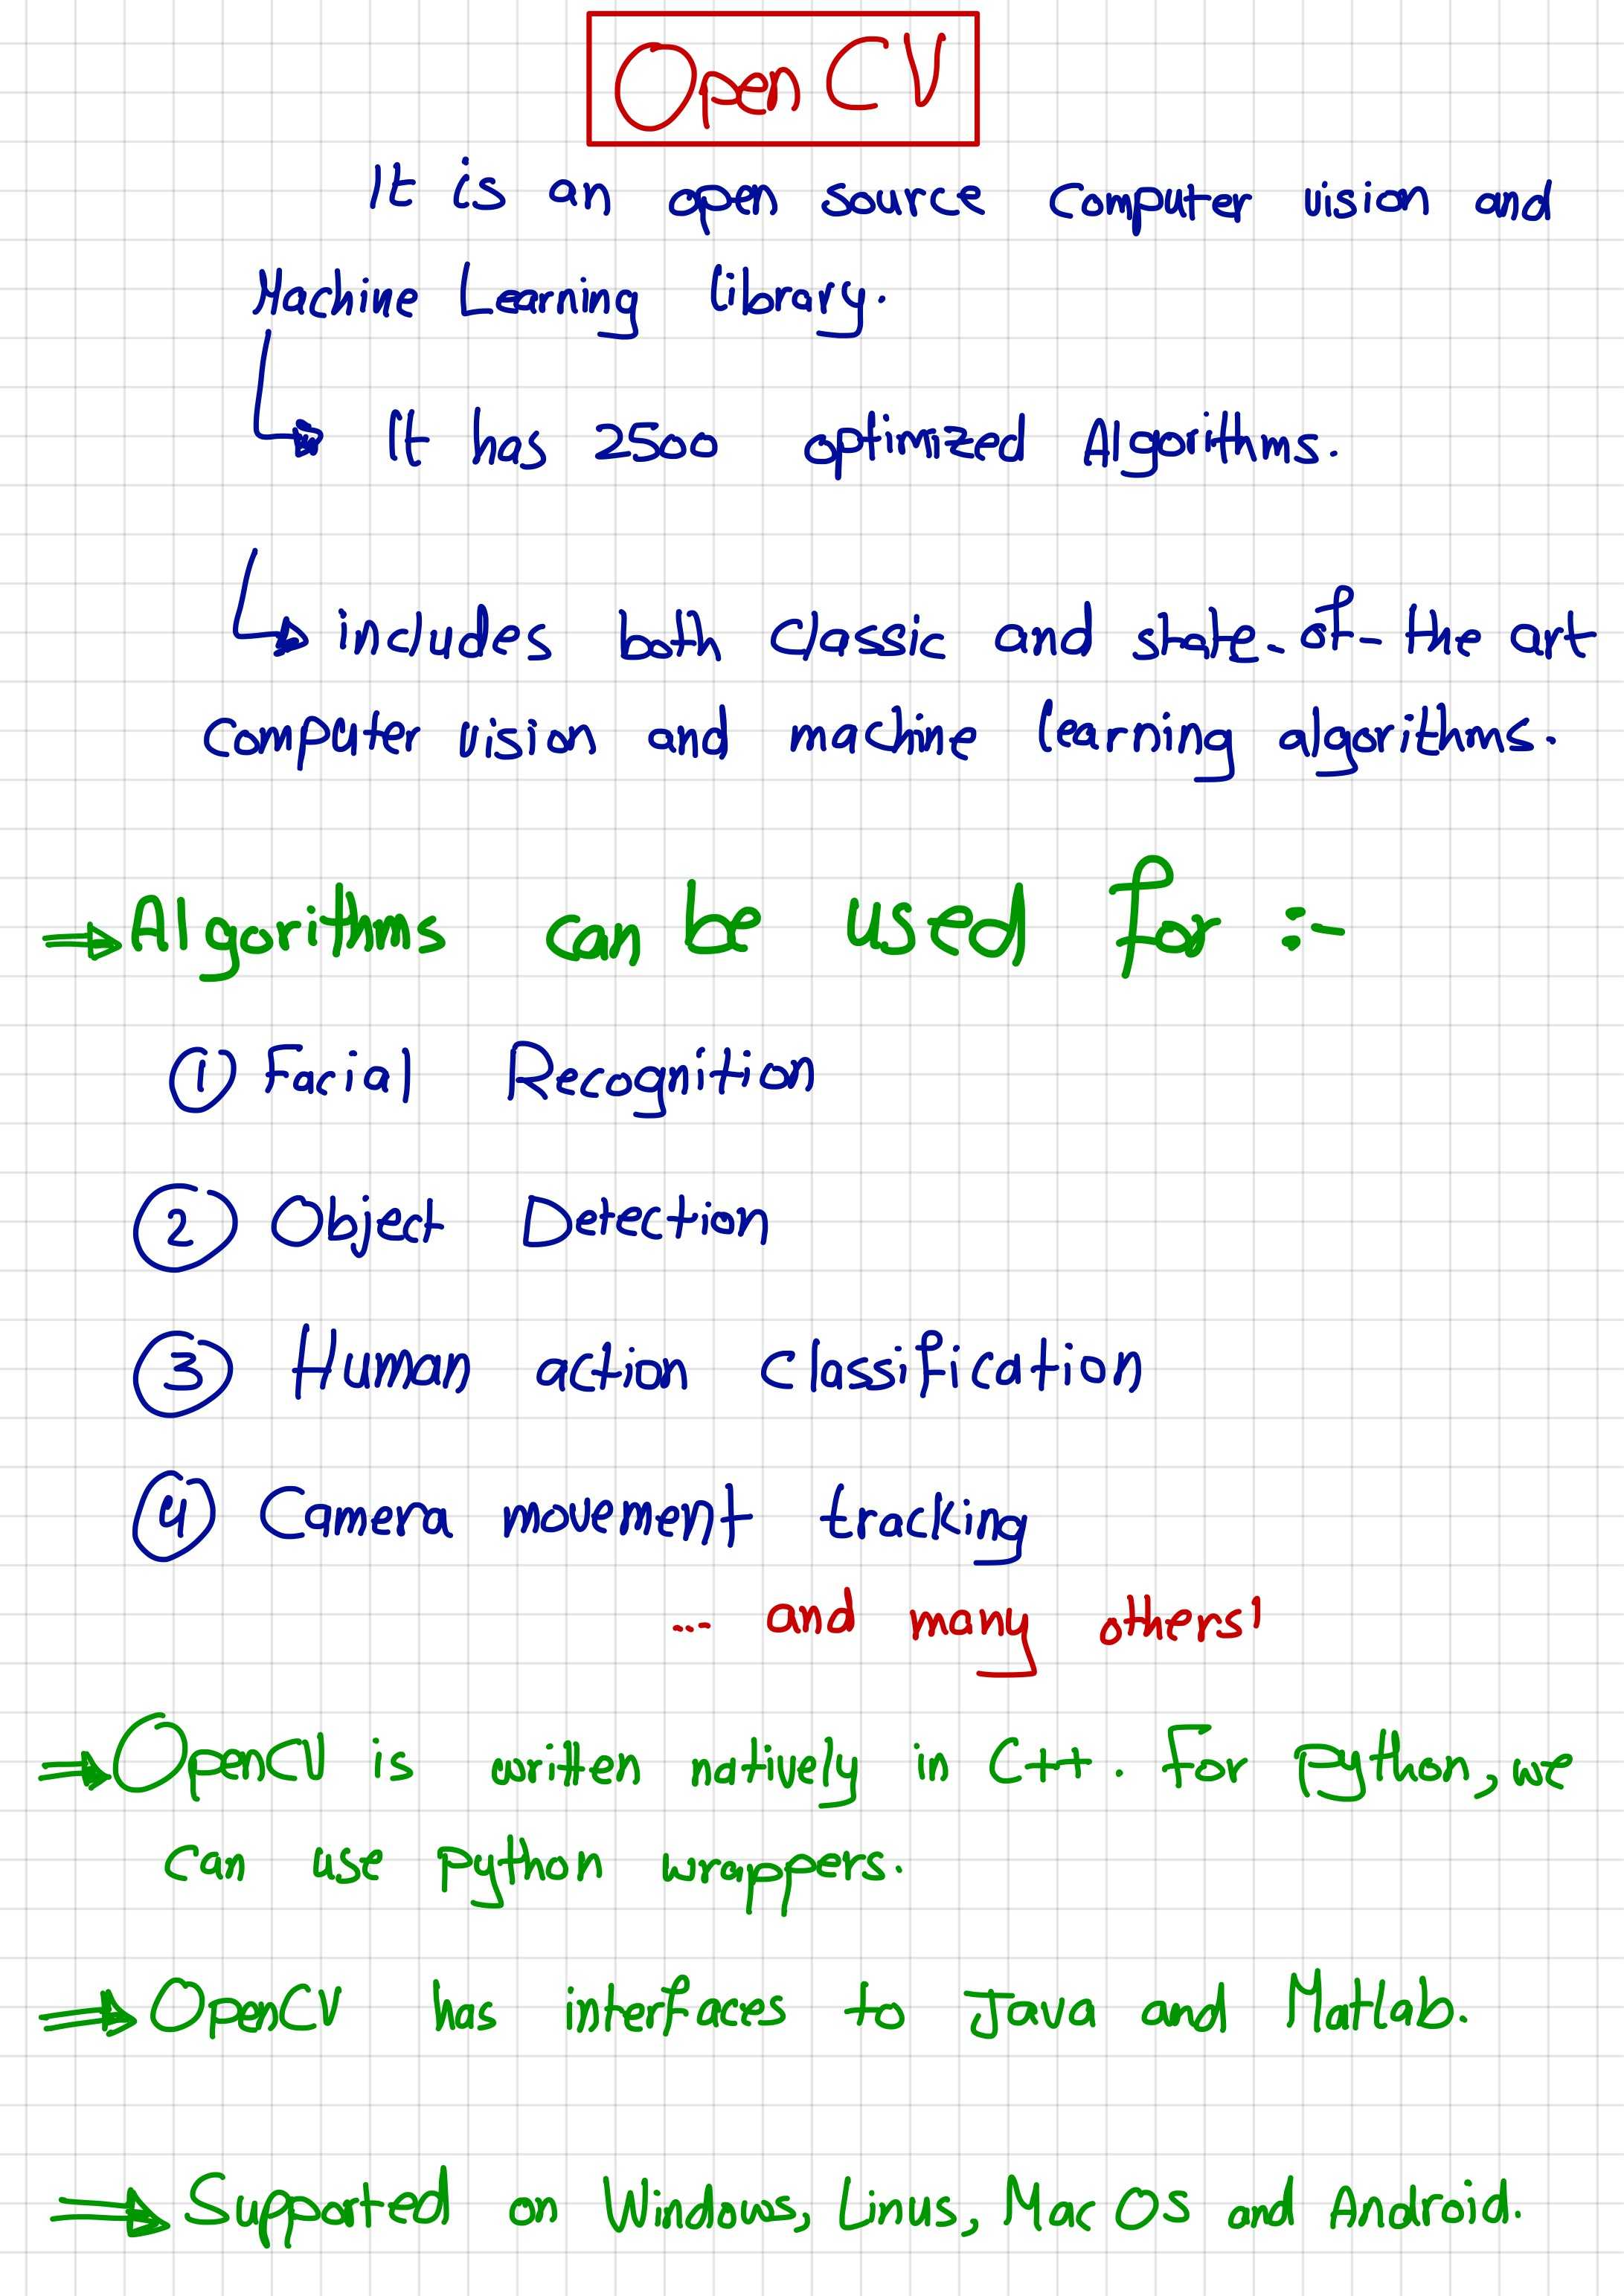 OpenCV
It is an open source computer vision and
Machine Learning library.
It has 2500 optimized Algorithms.
includes both classic and state-of-the art
computer vision and machine learning algorithms.
Algorithms can be used for :-
① Facial Recognition
② Object Detection
③ Human action classification
④ Camera movement tracking
... and many others!
OpenCV is written natively in C++. For python, we
can use python wrappers.
OpenCV has interfaces to Java and Matlab.
Supported on Windows, Linus, Mac OS and Android.